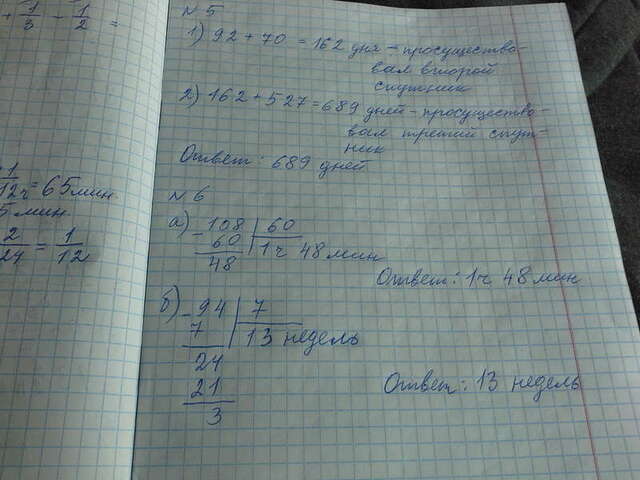 + 1/3 - 1/2 =
1/12 ч = 65 мин.
5 мин.
2/24 = 1/12
N 5
1) 92 + 70 = 162 дня – просущество-
вал второй
спутник
2) 162 + 527 = 689 дней - просущество-
вал третий спут-
ник
Ответ: 689 дней
N 6
а) - 108 | 60
60 | 1 ч 48 мин
48
Ответ: 1 ч 48 мин
б) - 94 | 7
7 | 13 недель
24
21
3
Ответ: 13 недель